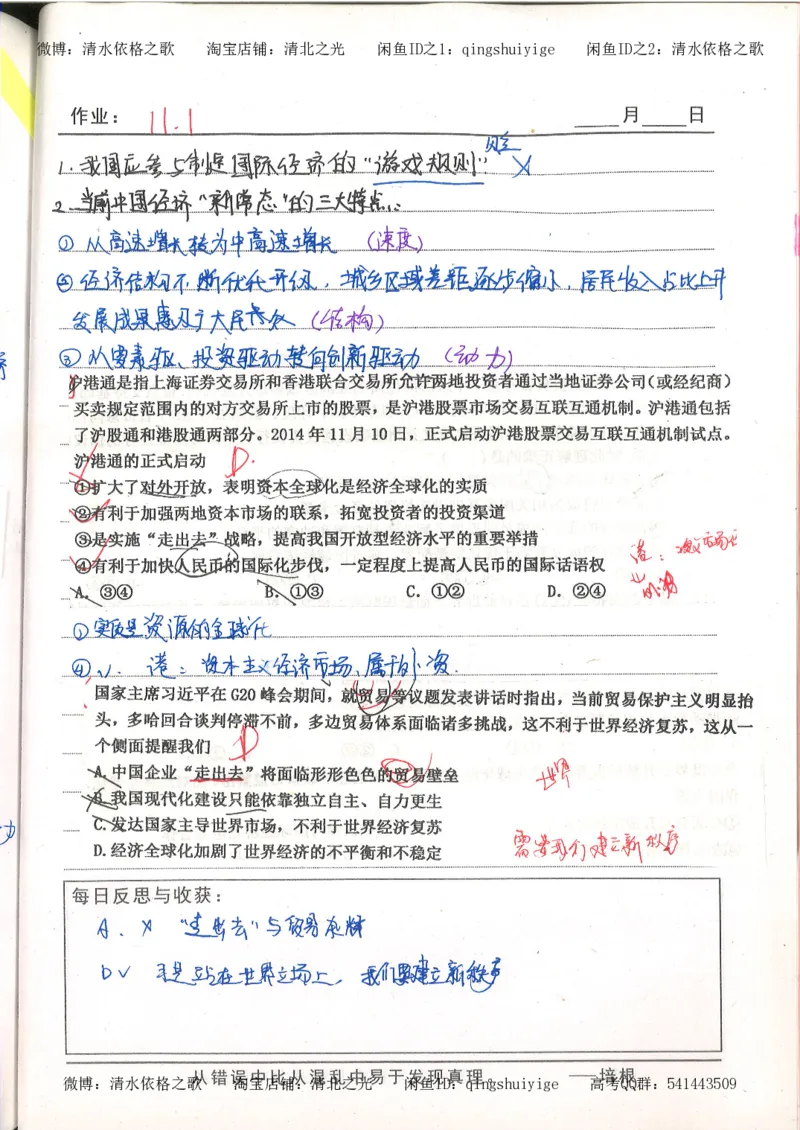 微博：清水依格之歌 淘宝店铺：清北之光 闲鱼ID之1：qingshuiyige 闲鱼ID之2：清水依格之歌
作业： 11.1 月 日
贸易
1. 我国应参与制定国际经济的“游戏规则” ×
2. 当前中国经济“新常态”的三大特点：
① 从高速增长转为中高速增长 （速度）
② 经济结构不断优化升级，城乡区域差距逐步缩小，居民收入占比上升
发展成果惠及广大民众 （结构）
③ 从要素驱、投资驱动转向创新驱动 （动力）
沪港通是指上海证券交易所和香港联合交易所允许两地投资者通过当地证券公司（或经纪商）
买卖规定范围内的对方交易所上市的股票，是沪港股票市场交易互联互通机制。沪港通包括
了沪股通和港股通两部分。2014年11月10日，正式启动沪港股票交易互联互通机制试点。
沪港通的正式启动 D.
①扩大了对外开放，表明资本全球化是经济全球化的实质
②有利于加强两地资本市场的联系，拓宽投资者的投资渠道
③是实施“走出去”战略，提高我国开放型经济水平的重要举措
④有利于加快人民币的国际化步伐，一定程度上提高人民币的国际话语权
A. ③④ B. ①③ C. ①② D. ②④
① 实质是资源的全球化
④ √. 港：资本主义经济市场，属于外资.
国家主席习近平在G20峰会期间，就贸易等议题发表讲话时指出，当前贸易保护主义明显抬
头，多哈回合谈判停滞不前，多边贸易体系面临诸多挑战，这不利于世界经济复苏，这从一
个侧面提醒我们 D
A. 中国企业“走出去”将面临形形色色的贸易壁垒
世界
B. 我国现代化建设只能依靠独立自主、自力更生
C. 发达国家主导世界市场，不利于世界经济复苏
需要我们建立新秩序
D. 经济全球化加剧了世界经济的不平衡和不稳定
每日反思与收获：
A. × “走出去”与贸易
D √ 是站在世界立场上，我们要建立新秩序
从错误中比从混乱中易于发现真理 ——培根
微博：清水依格之歌 淘宝店铺：清北之光 闲鱼ID：qingshuiyige 高考QQ群：541443509